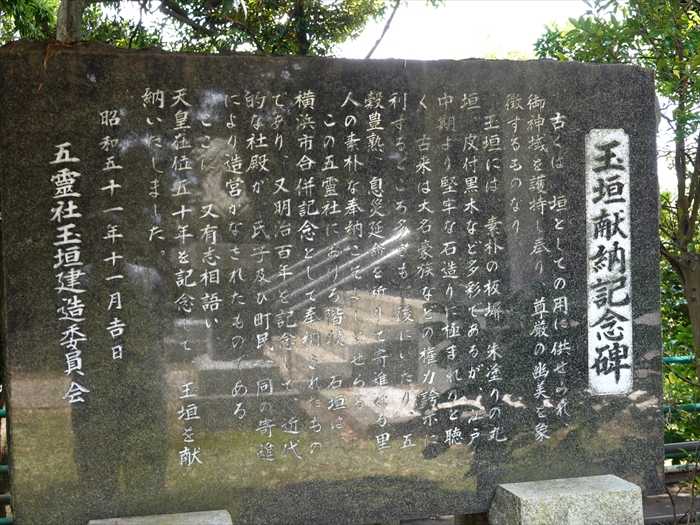 玉垣献納記念碑
古くは 垣としての用に供せられ、
御神域を護持し奉り、尊厳の幽美を象
徴するものなり
玉垣には 素朴の板塀 朱塗りの丸
垣 皮付黒木など多彩であるが 江戸
中期より堅牢な石造りに極まれりと聴
く 古来は大名豪族などの権力誇示に
利するところ多きも 後にいたり、五
穀豊熟、息災延命を祈りて寄進する里
人の素朴な奉納こそ
この五霊社における階段 石垣は
横浜市合併記念として奉 されたもの
であり、又明治百年を記念して 近代
的な社殿が 氏子及び町民一同の寄進
により造営がなされたものである
ここに 又有志相語い
天皇在位五十年を記念して 玉垣を献
納いたしました。
昭和五十一年十一月吉日
五霊社玉垣建造委員会